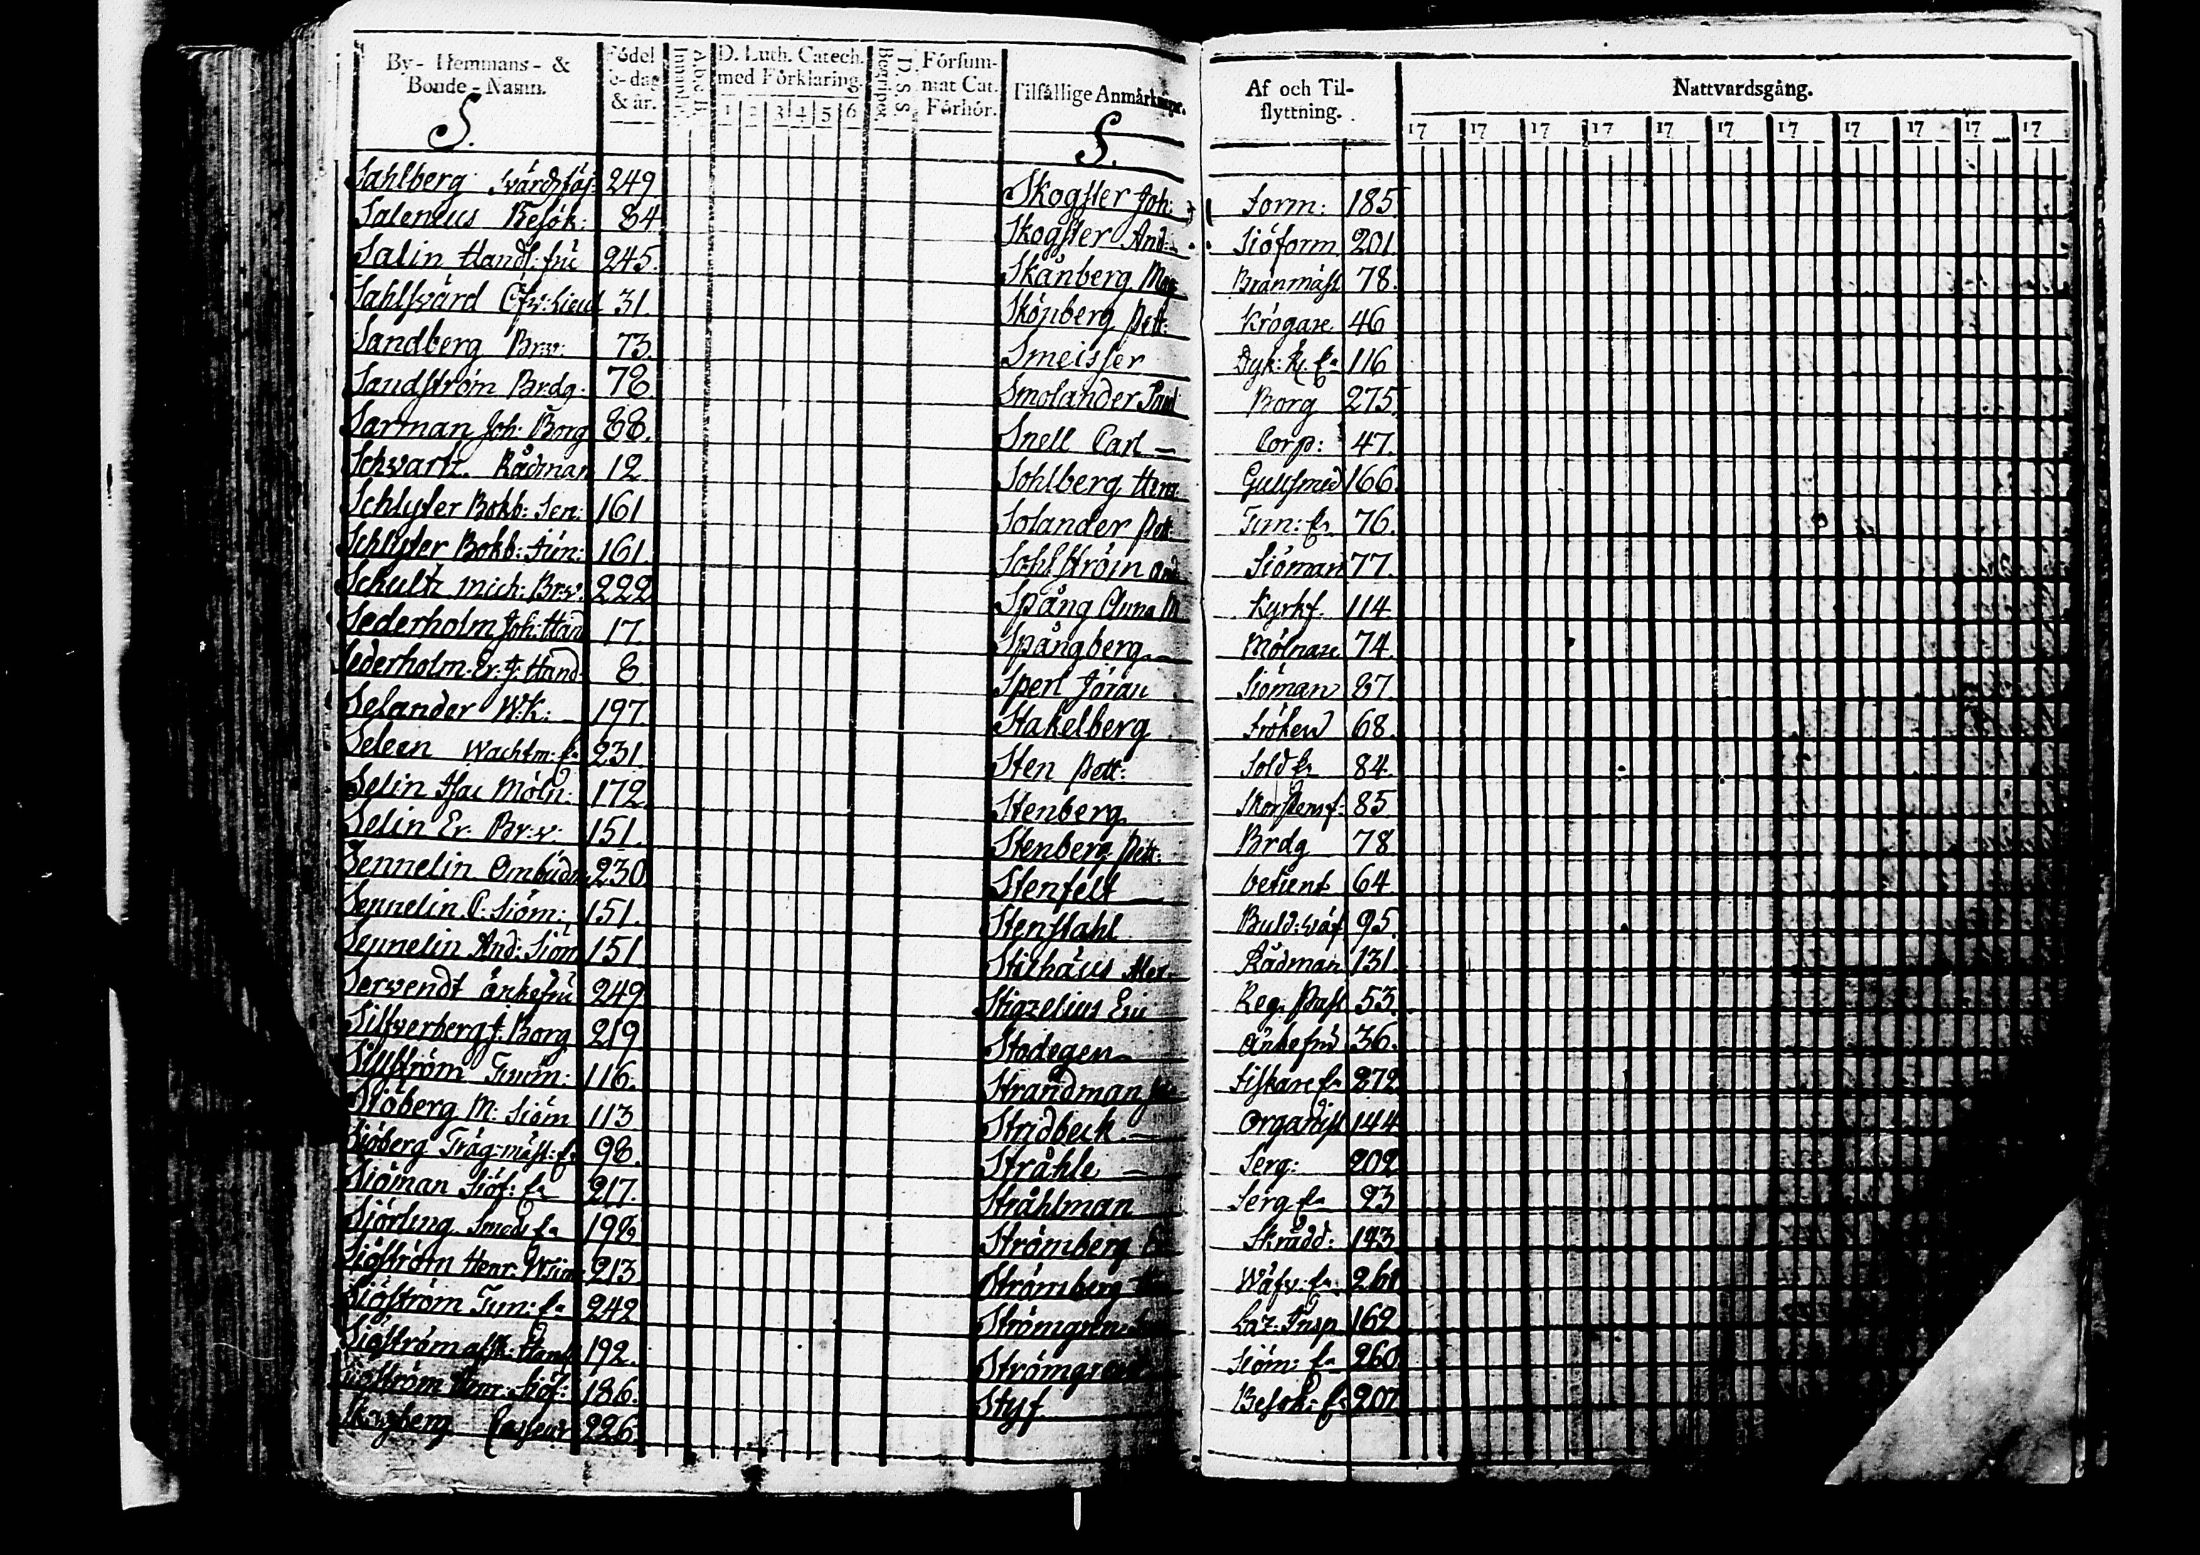 By- Hemmans- &
Bonde-Namn.
Födel
se-dag
& år.
Innantil.
A.b.c.B.
D. Luth. Catech.
med Förklaring.
1 2 3 4 5 6
Begripet.
D. S. S.
Försum-
mat Cat.
Förhör.
Tilfällige Anmärkningar.
S.
Sahlberg Svärdsfäj: 249
Salenius Besök: 84
Salin Handl: fru 245.
Sahlsvärd Öfw: Lieut 31.
Sandberg Br:w: 73.
Sandström Brdg. 78.
Sarman Joh: Borg 88.
Schvartz. Rådman 12.
Schlyter Bokb: Sen: 161
Schlyter Bokb: Jun: 161.
Schultz Mich: Br:v. 222
Sederholm Joh: Hand 17.
Sederholm. Er: J: Hand 8.
Selander W:K: 197.
Seleen Wachtm: E: 231.
Selin Isac Möln: 172.
Selin Er: Br:v: 151.
Sennelin Ombudsm 230
Sennelin C: Siöm: 151.
Sennelin And: Siöm 151
Servendt änkefru 249
Silfverberg J: Borg 219
Sillström Timm: 116.
Siöberg M: Siöm 113
Siöberg Träg:mäst: E: 98.
Siöman Siöf: E: 217.
Sjörling Smeds E: 198
Siöström Henr. 213
Siöström Tim: E: 242
Siöström Handl 192.
Siöström Henr: Siöf: 186.
Skogberg Casseur 226.
S.
Skogster Joh:
Skogster And:
Skånberg Mat
Skönberg Pett:
Smeisser
Smolander Paul
Snell Carl
Sohlberg Henr
Solander Pett:
Sohlström And
Spång Anna M
Spångberg
Sperl Jöran
Stakelberg
Sten Pett:
Stenberg
Stenberg Pett:
Stenfelt
Stenstahl
Stichæus Alex
Stigzelius Eric
Stodegen
Strandman
Stridbeck
Stråhle
Stråhlman
Strömberg
Strömberg
Strömgren
Strömgren
Styf
Af och Til-
flyttning.
Nattvardsgång.
17 17 17 17 17 17 17 17 17 17 17
Form: 185
Siöform 201
Brånmäst 78.
Krögare 46
Dyk: K: E: 116
Borg 275.
Corp: 47.
Gulsmed 166.
Tim: E: 76.
Siöman 77.
Kyrkf. 114.
Mölnare 74.
Siöman 87.
Fröken 68.
Sold E: 84.
Skorstensf: 85.
Brdg 78.
64
95.
Rådman 131.
Reg. Past 53.
Änkefru 36.
Fiskare E: 272
Organist 144
Serg: 202
Serg E: 23
Skrädd: 193
Wäfv: E: 261
Insp 169
Siöm: E: 260.
Besök: E: 207